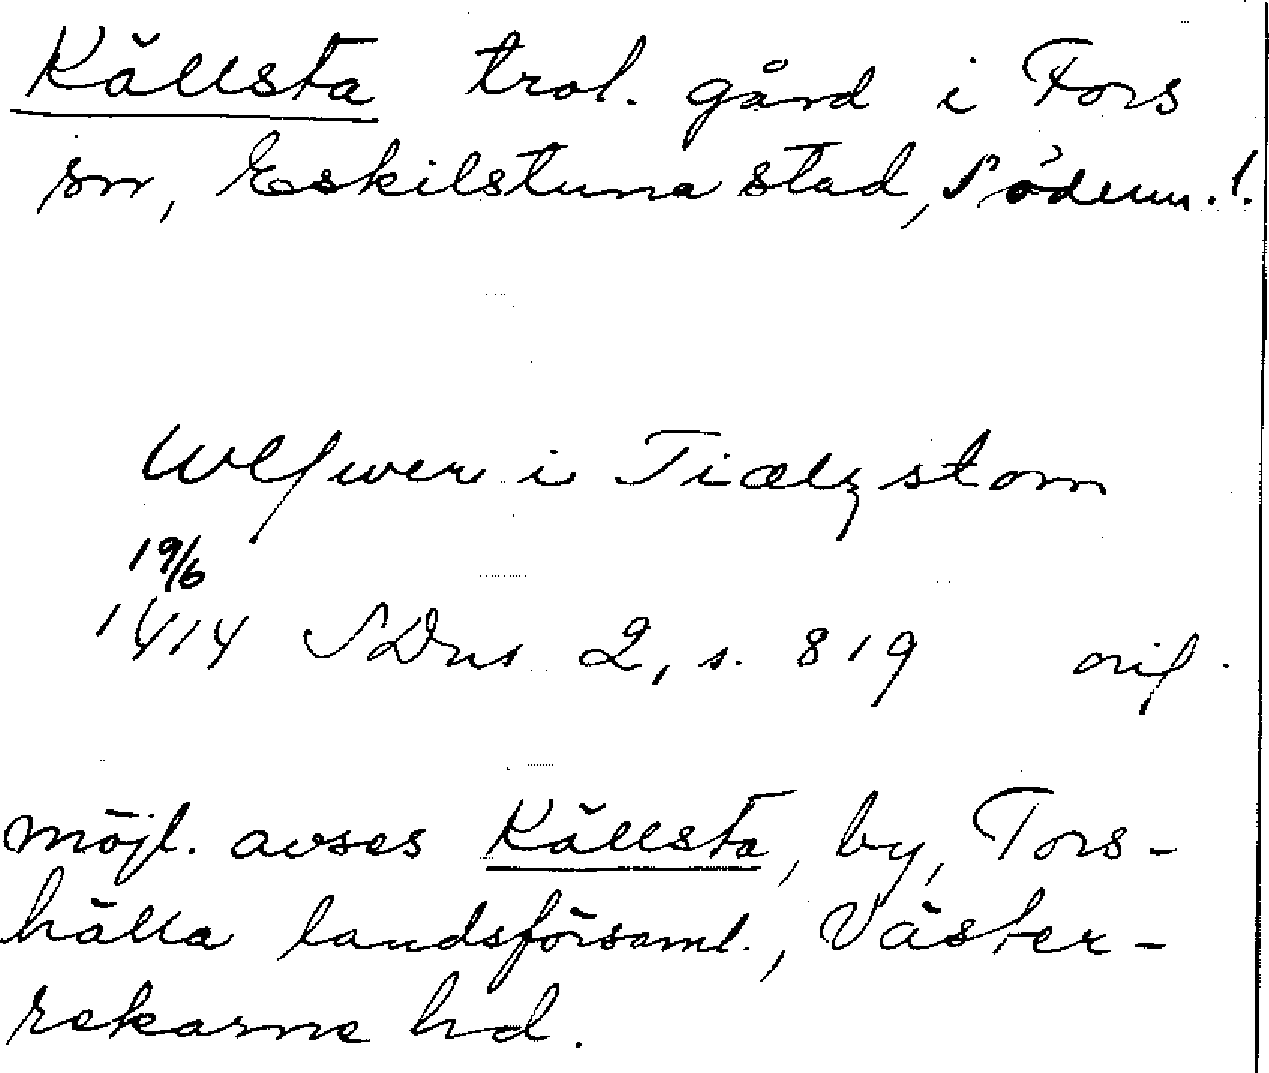 Källsta trol. gård i Fors
sn, Eskilstuna stad, Söderm. l.
Ulfwer i Tiælzstom
19/6
1414 SDns 2, s. 819 orig.
möjl. avses Källsta, by, Tors-
hälla landsförsaml., Väster-
rekarne hd.